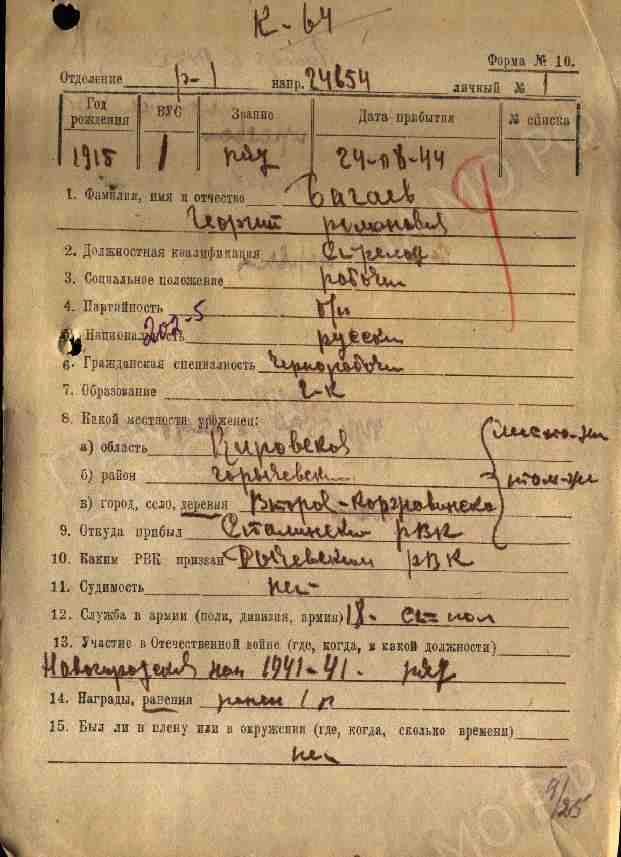 К-64
Форма № 10.
Отделение р-1 напр. 24654 личный № 1
Год рождения ВУС Звание Дата прибытия № списка
1915 1 ряд 24-08-44
1. Фамилия, имя и отчество Багаев
Георгий Романович
2. Должностная квалификация Стрелок
3. Социальное положение рабочий
4. Партийность б/п
202-5
5. Национальность русский
6. Гражданская специалность Чернорабочий
7. Образование 2-к
8. Какой местности уроженец:
а) область Кировской
б) район
в) город, село, деревня Второе-
место-жи
9. Откуда прибыл Сталинский РВК
10. Каким РВК призван РВК
11. Судимость нет
12. Служба в армии (полк, дивизия, армия) 18-
13. Участие в Отечественной войне (где, когда, в какой должности)
1941-41. ряд
14. Награды, ранения ранен 1 р
15. Был ли в плену или в окружении (где, когда, сколько времени)
нет
МО РФ
МО РФ